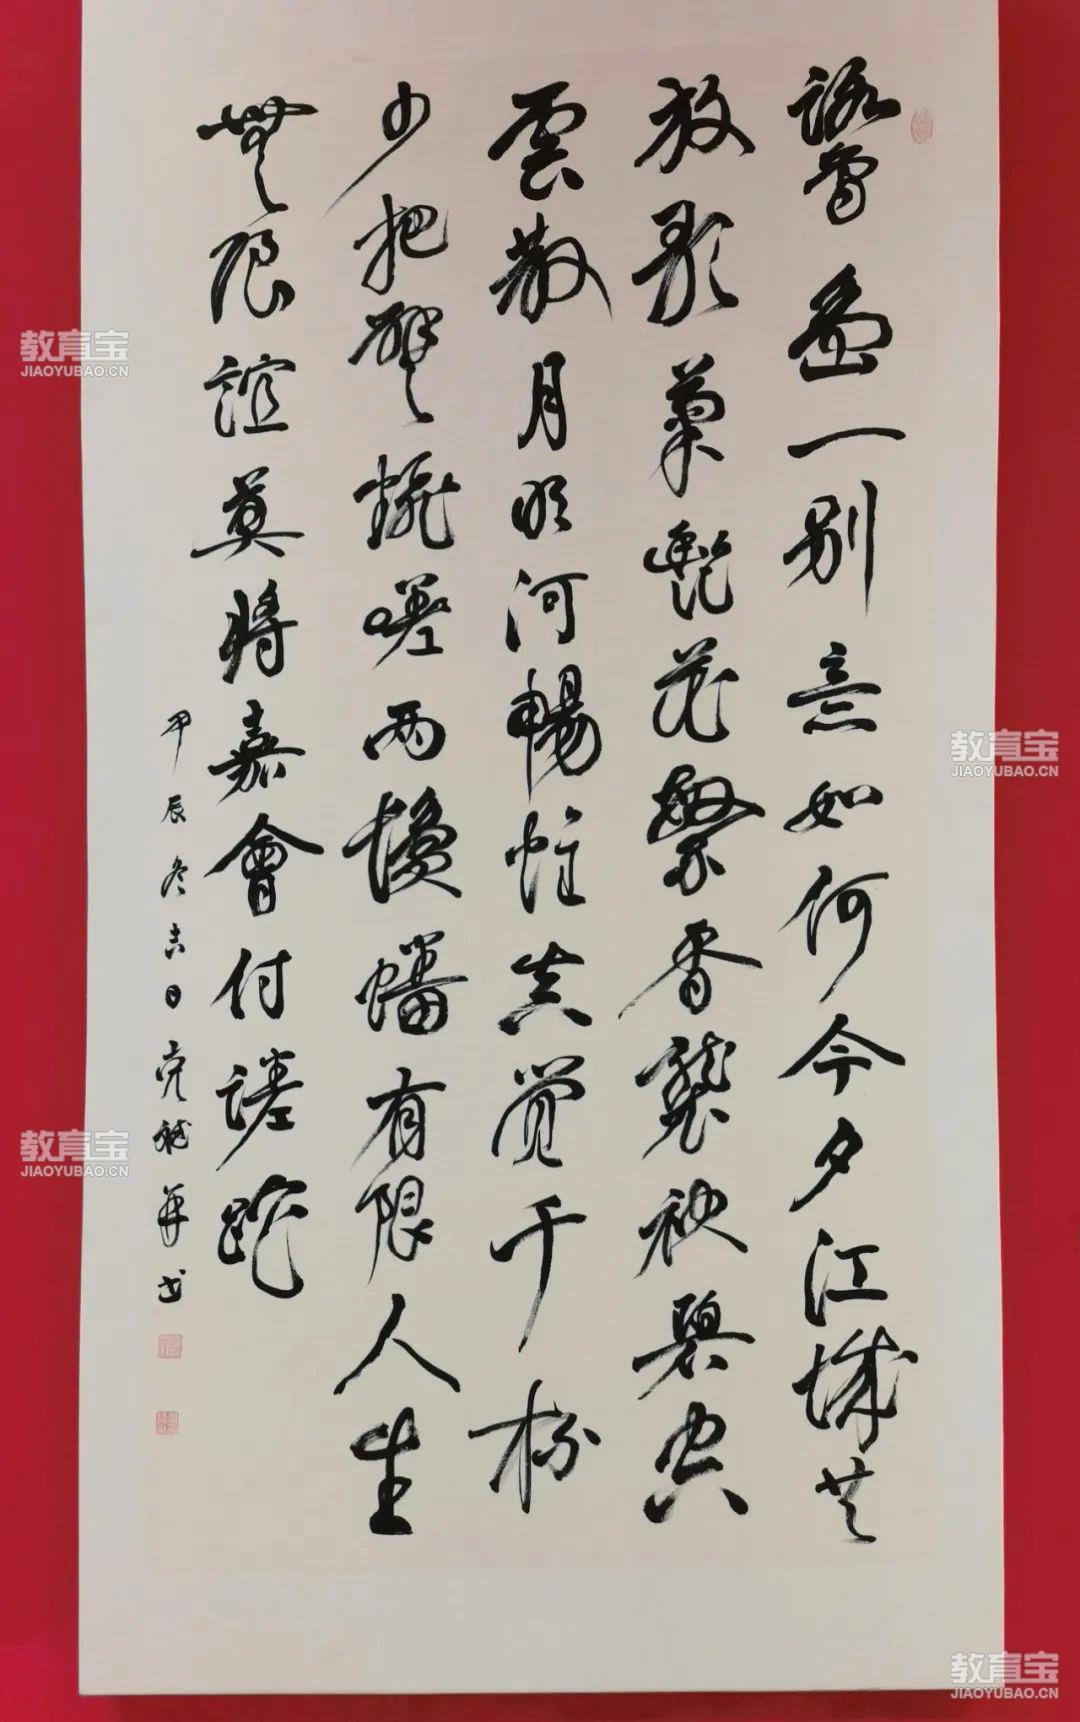 鷺島一別意如何今夕江城共
放歌菊艷花繁香襲袂碧空
雲散月明河暢真覺千杯
少把臂嗟兩鬢皤有限人生
無限誼莫將嘉會付蹉跎
甲辰冬吉日克并书
教育宝
JIAOYUBAO.CN
教育宝
JIAOYUBAO.CN
教育宝
JIAOYUBAO.CN
教育宝
JIAOYUBAO.CN